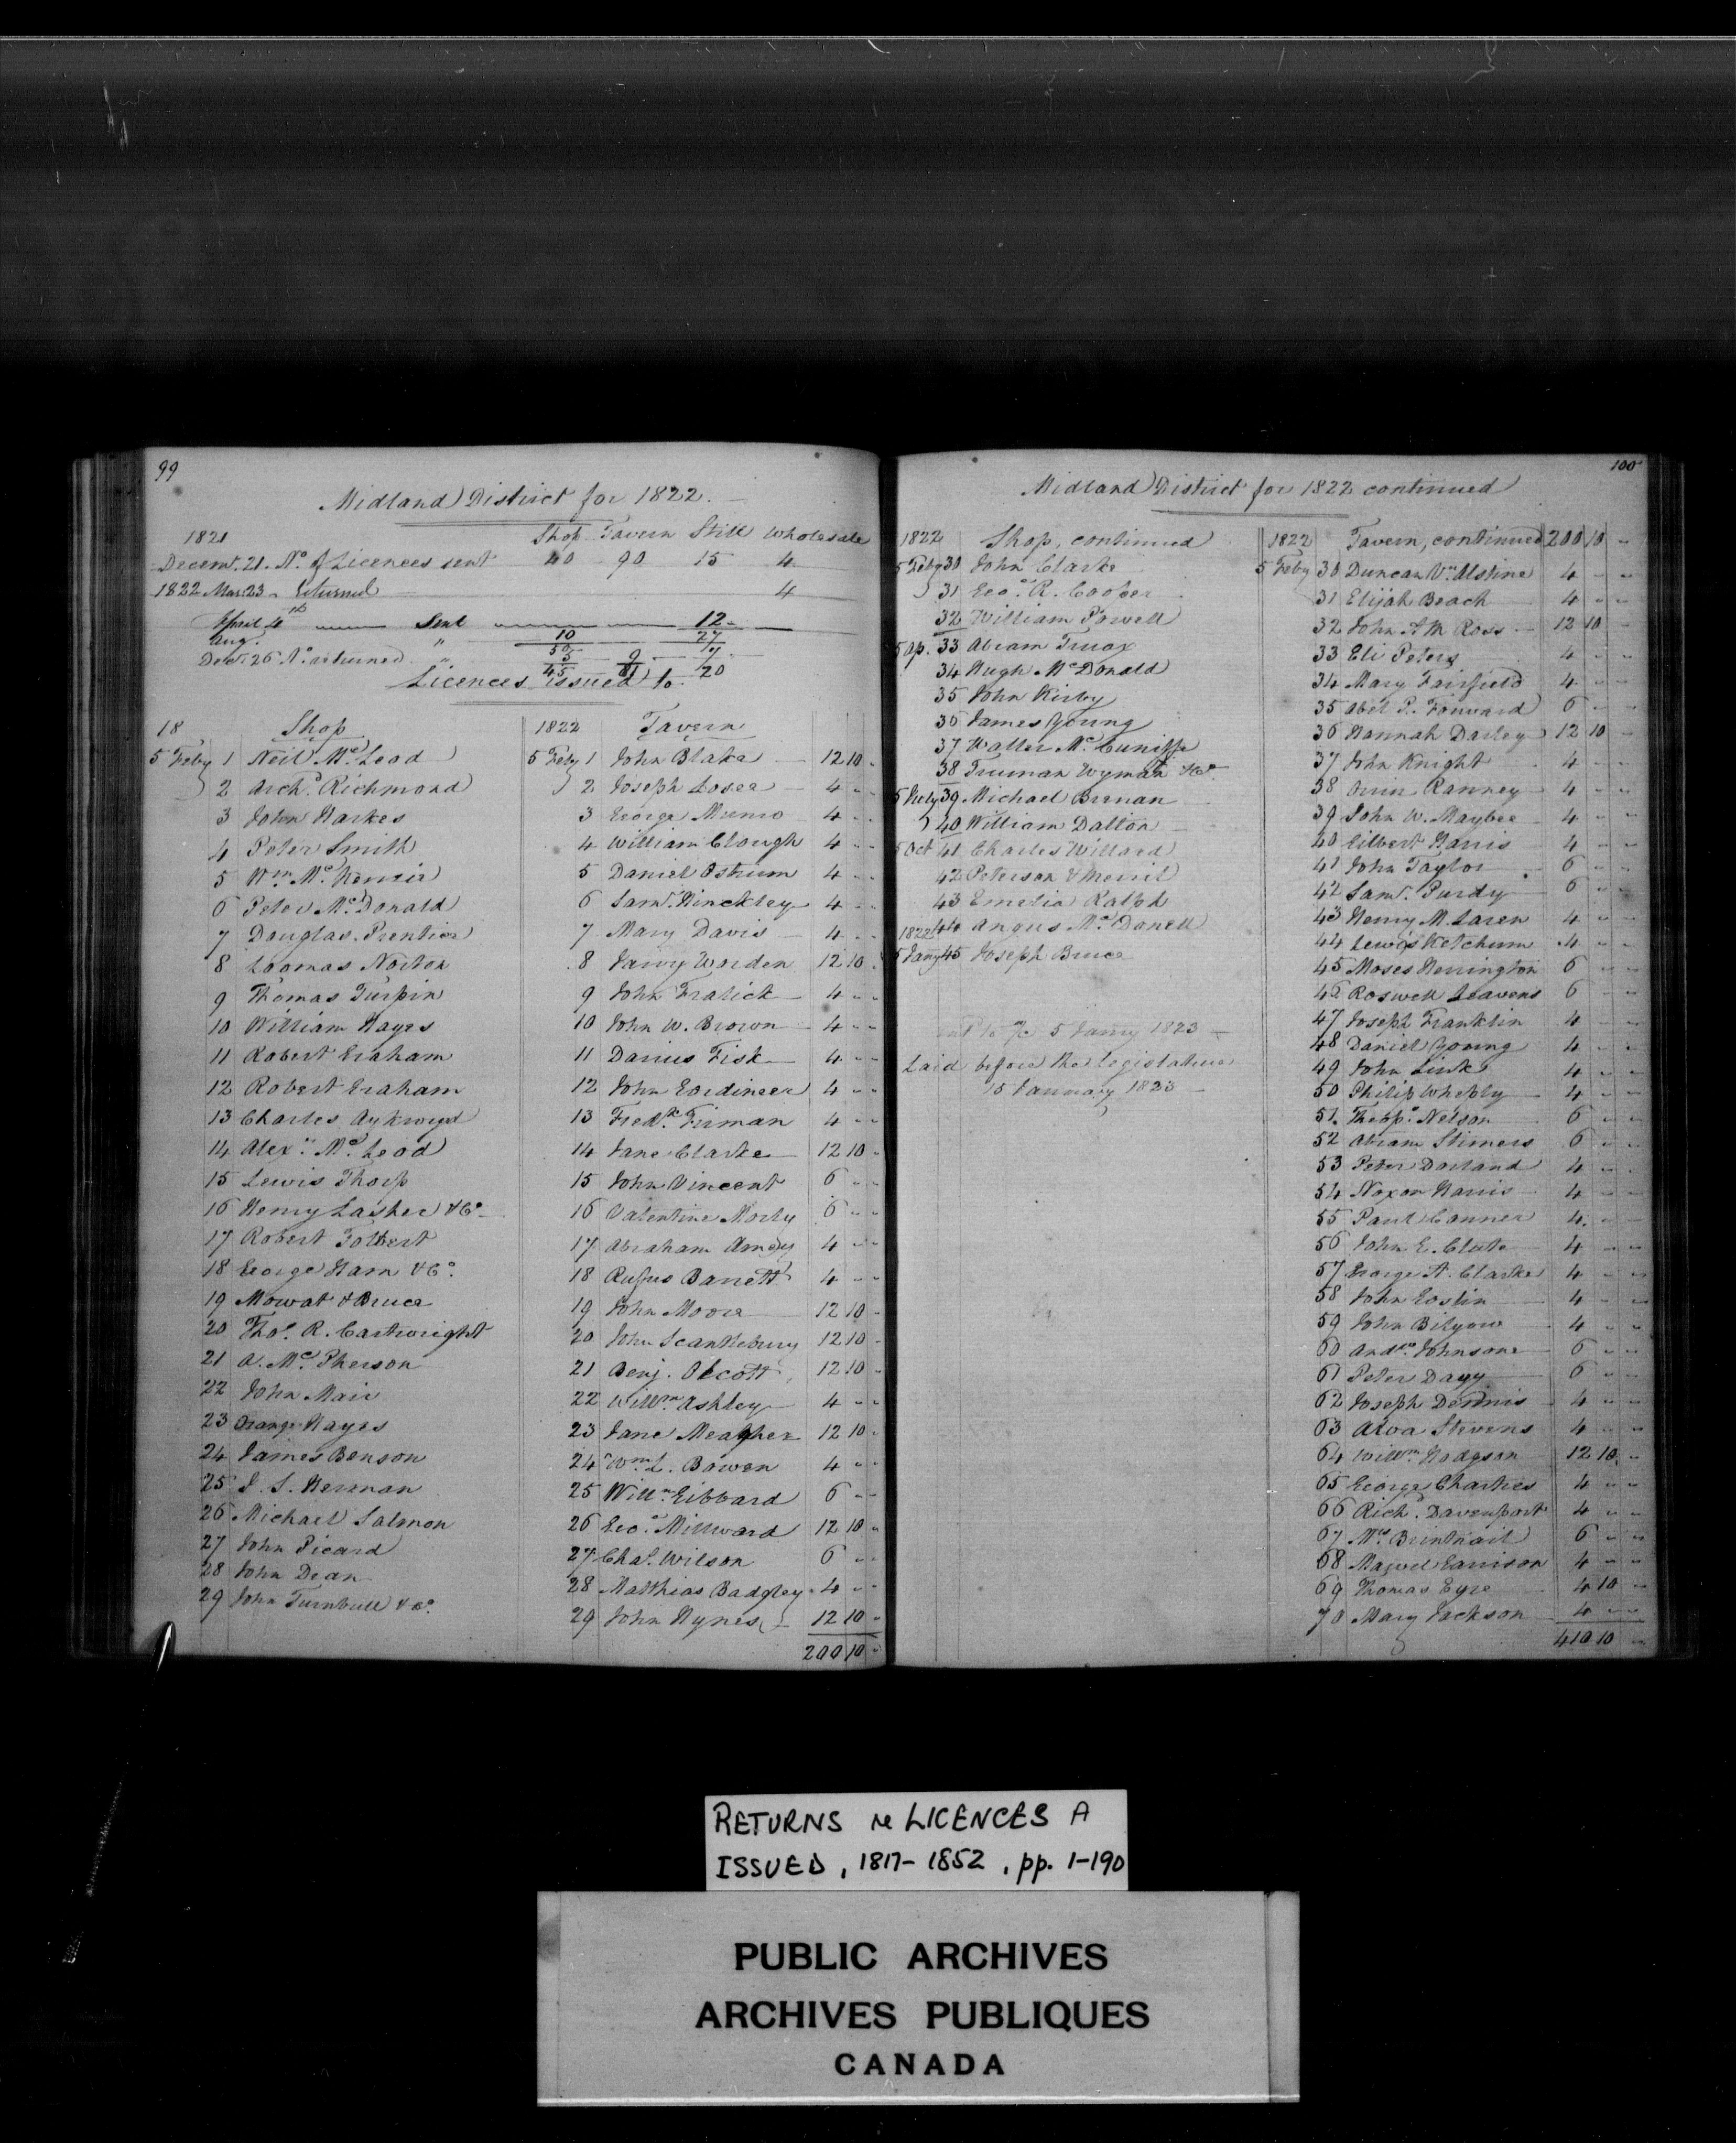 99
Midland District for 1822.
1821 Shop Tavern Still Wholesale
Decemr. 21. No. of Licences sent 40 90 15 4
1822 Mar: 23 Returned 4
April 4th Sent 12
Aug. " 10 27
Decr. 26 No. returned " 50 5 9 7
45 81 20
Licences issued to
18 Shop
5 Feby 1 Neil McLeod
2 Archd. Richmond
3 John Harkes
4 Peter Smith
5 Wm. McKenzie
6 Peter McDonald
7 Douglas Prentice
8 Loomas Norton
9 Thomas Turpin
10 William Hayes
11 Robert Graham
12 Robert Graham
13 Charles Aykroyd
14 Alexr. McLeod
15 Lewis Thorp
16 Henry Lasher & Co.
17 Robert Tolbert
18 George Ham & Co.
19 Mowat & Bruce
20 Thos. R. Cartwright
21 A. McPherson
22 John Mair
23 Orange Hayes
24 James Benson
25 J. S. Herman
26 Michael Salmon
27 John Picard
28 John Dean
29 John Turnbull & Co.
1822 Tavern
5 Feby 1 John Blake 12 10 "
2 Joseph Losee 4 " "
3 George Munro 4 " "
4 William Clough 4 " "
5 Daniel Ostrum 4 " "
6 Saml. Hinckley 4 " "
7 Mary Davis 4 " "
8 Jarvy Worden 12 10 "
9 John Fralick 4 " "
10 John W. Brown 4 " "
11 Darius Fisk 4 " "
12 John Gordineer 4 " "
13 Fredk. Firman 4 " "
14 Jane Clarke 12 10 "
15 John Vincent 6 " "
16 Valentine Morly 6 " "
17 Abraham Amey 4 " "
18 Rufus Barrett 4 " "
19 John Moore 12 10 "
20 John Scantlebury 12 10 "
21 Benj. Olcott 12 10 "
22 Willm. Ashley 4 " "
23 Jane Meagher 12 10 "
24 Wm. L. Bowen 4 " "
25 Willm. Gibbard 6 " "
26 Geo. Millward 12 10 "
27 Chas. Wilson 6 " "
28 Matthias Badgley 4 " "
29 John Hynes 12 10 "
200 10 "
100
Midland District for 1822 continued
1822 Shop, continued
5 Feby 30 John Clarke
31 Geo. R. Cooper
32 William Powell
5 Ap. 33 Abram Truax
34 Hugh McDonald
35 John Kirby
36 James Young
37 Walter McCuniffe
38 Truman Wyman & Co.
5 July 39 Michael Brenan
40 William Dalton
5 Oct 41 Charles Willard
42 Peterson & Merril
43 Emelia Ralph
1822 44 Angus McDonell
5 Jany 45 Joseph Bruce
5 Janry 1823
Laid before the Legislature
15 January 1823
1822 Tavern, continued 200 10 "
5 Feby 30 Duncan Vn. Alstine 4 " "
31 Elijah Beach 4 " "
32 John A M Ross 12 10 "
33 Eli Peters 4 " "
34 Mary Fairfield 4 " "
35 Abel P. Forward 6 " "
36 Hannah Darley 12 10 "
37 John Knight 4 " "
38 Orrin Ranney 4 " "
39 John W. Maybee 4 " "
40 Gilbert Harris 4 " "
41 John Taylor 6 " "
42 Saml. Purdy 6 " "
43 Henry M. Laren 4 " "
44 Lewis Ketchum 4 " "
45 Moses Herrington 6 " "
46 Roswell Leavens 6 " "
47 Joseph Franklin 4 " "
48 Daniel Young 4 " "
49 John Link 4 " "
50 Philip Whebly 4 " "
51 Nelson 6 " "
52 Abram Stimers 6 " "
53 Peter Dorland 4 " "
54 Noxon Harris 4 " "
55 Paul Conner 4 " "
56 John E. Clute 4 " "
57 George A. Clarke 4 " "
58 John Goslin 4 " "
59 John Bilyow 4 " "
60 Andw. Johnson 6 " "
61 Peter Davy 6 " "
62 Joseph Dennis 4 " "
63 Alva Stevens 4 " "
64 Willm. Hodgson 12 10 "
65 George Charters 4 " "
66 Richd. Davenport 4 " "
67 Brintnail 6 " "
68 Garrison 4 " "
69 Thomas Eyre 4 10 "
70 Mary Jackson 4 " "
410 10 "
RETURNS re LICENCES A
ISSUED, 1817-1852, pp. 1-190
PUBLIC ARCHIVES
ARCHIVES PUBLIQUES
CANADA